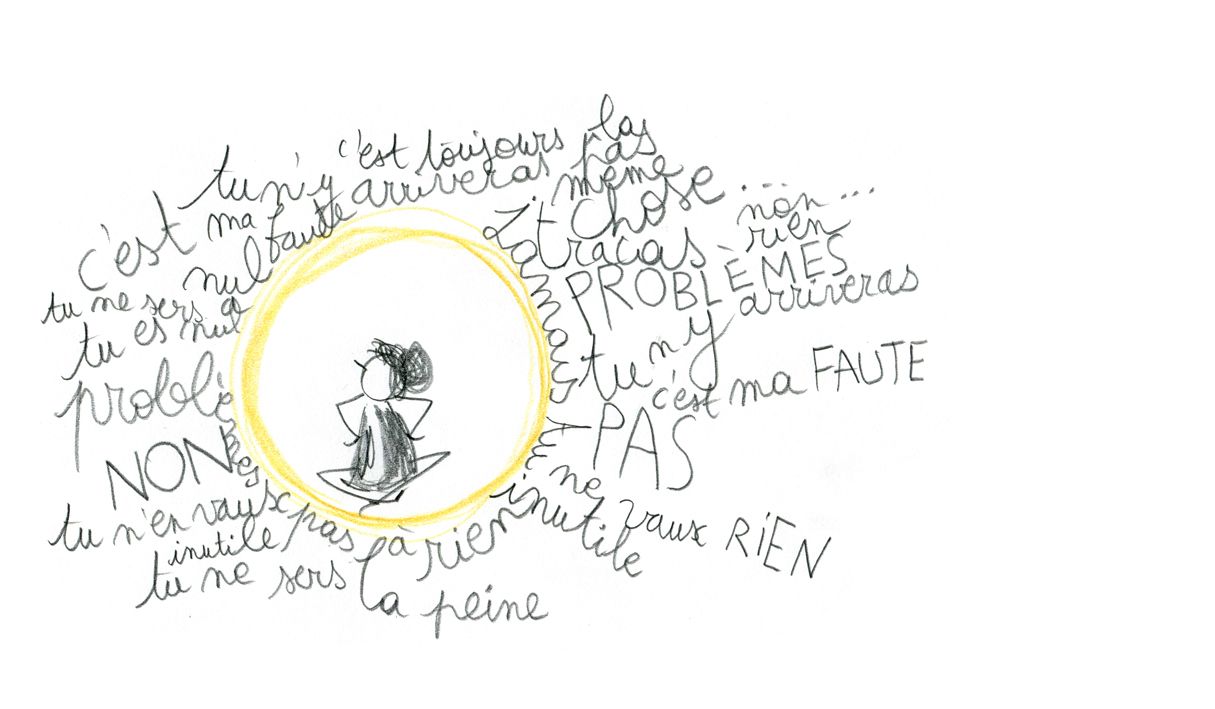 c'est toujours la même chose...
tu n'y arriveras pas
c'est ma faute
nul
tu ne sers à
tu es nul
problèmes
NON
tu n'en vaux pas la peine
inutile
tu ne sers à rien
Jamais
tracas
non...
rien
PROBLÈMES
tu n'y arriveras
PAS
c'est ma FAUTE
Tu ne vaux RiEN
inutile